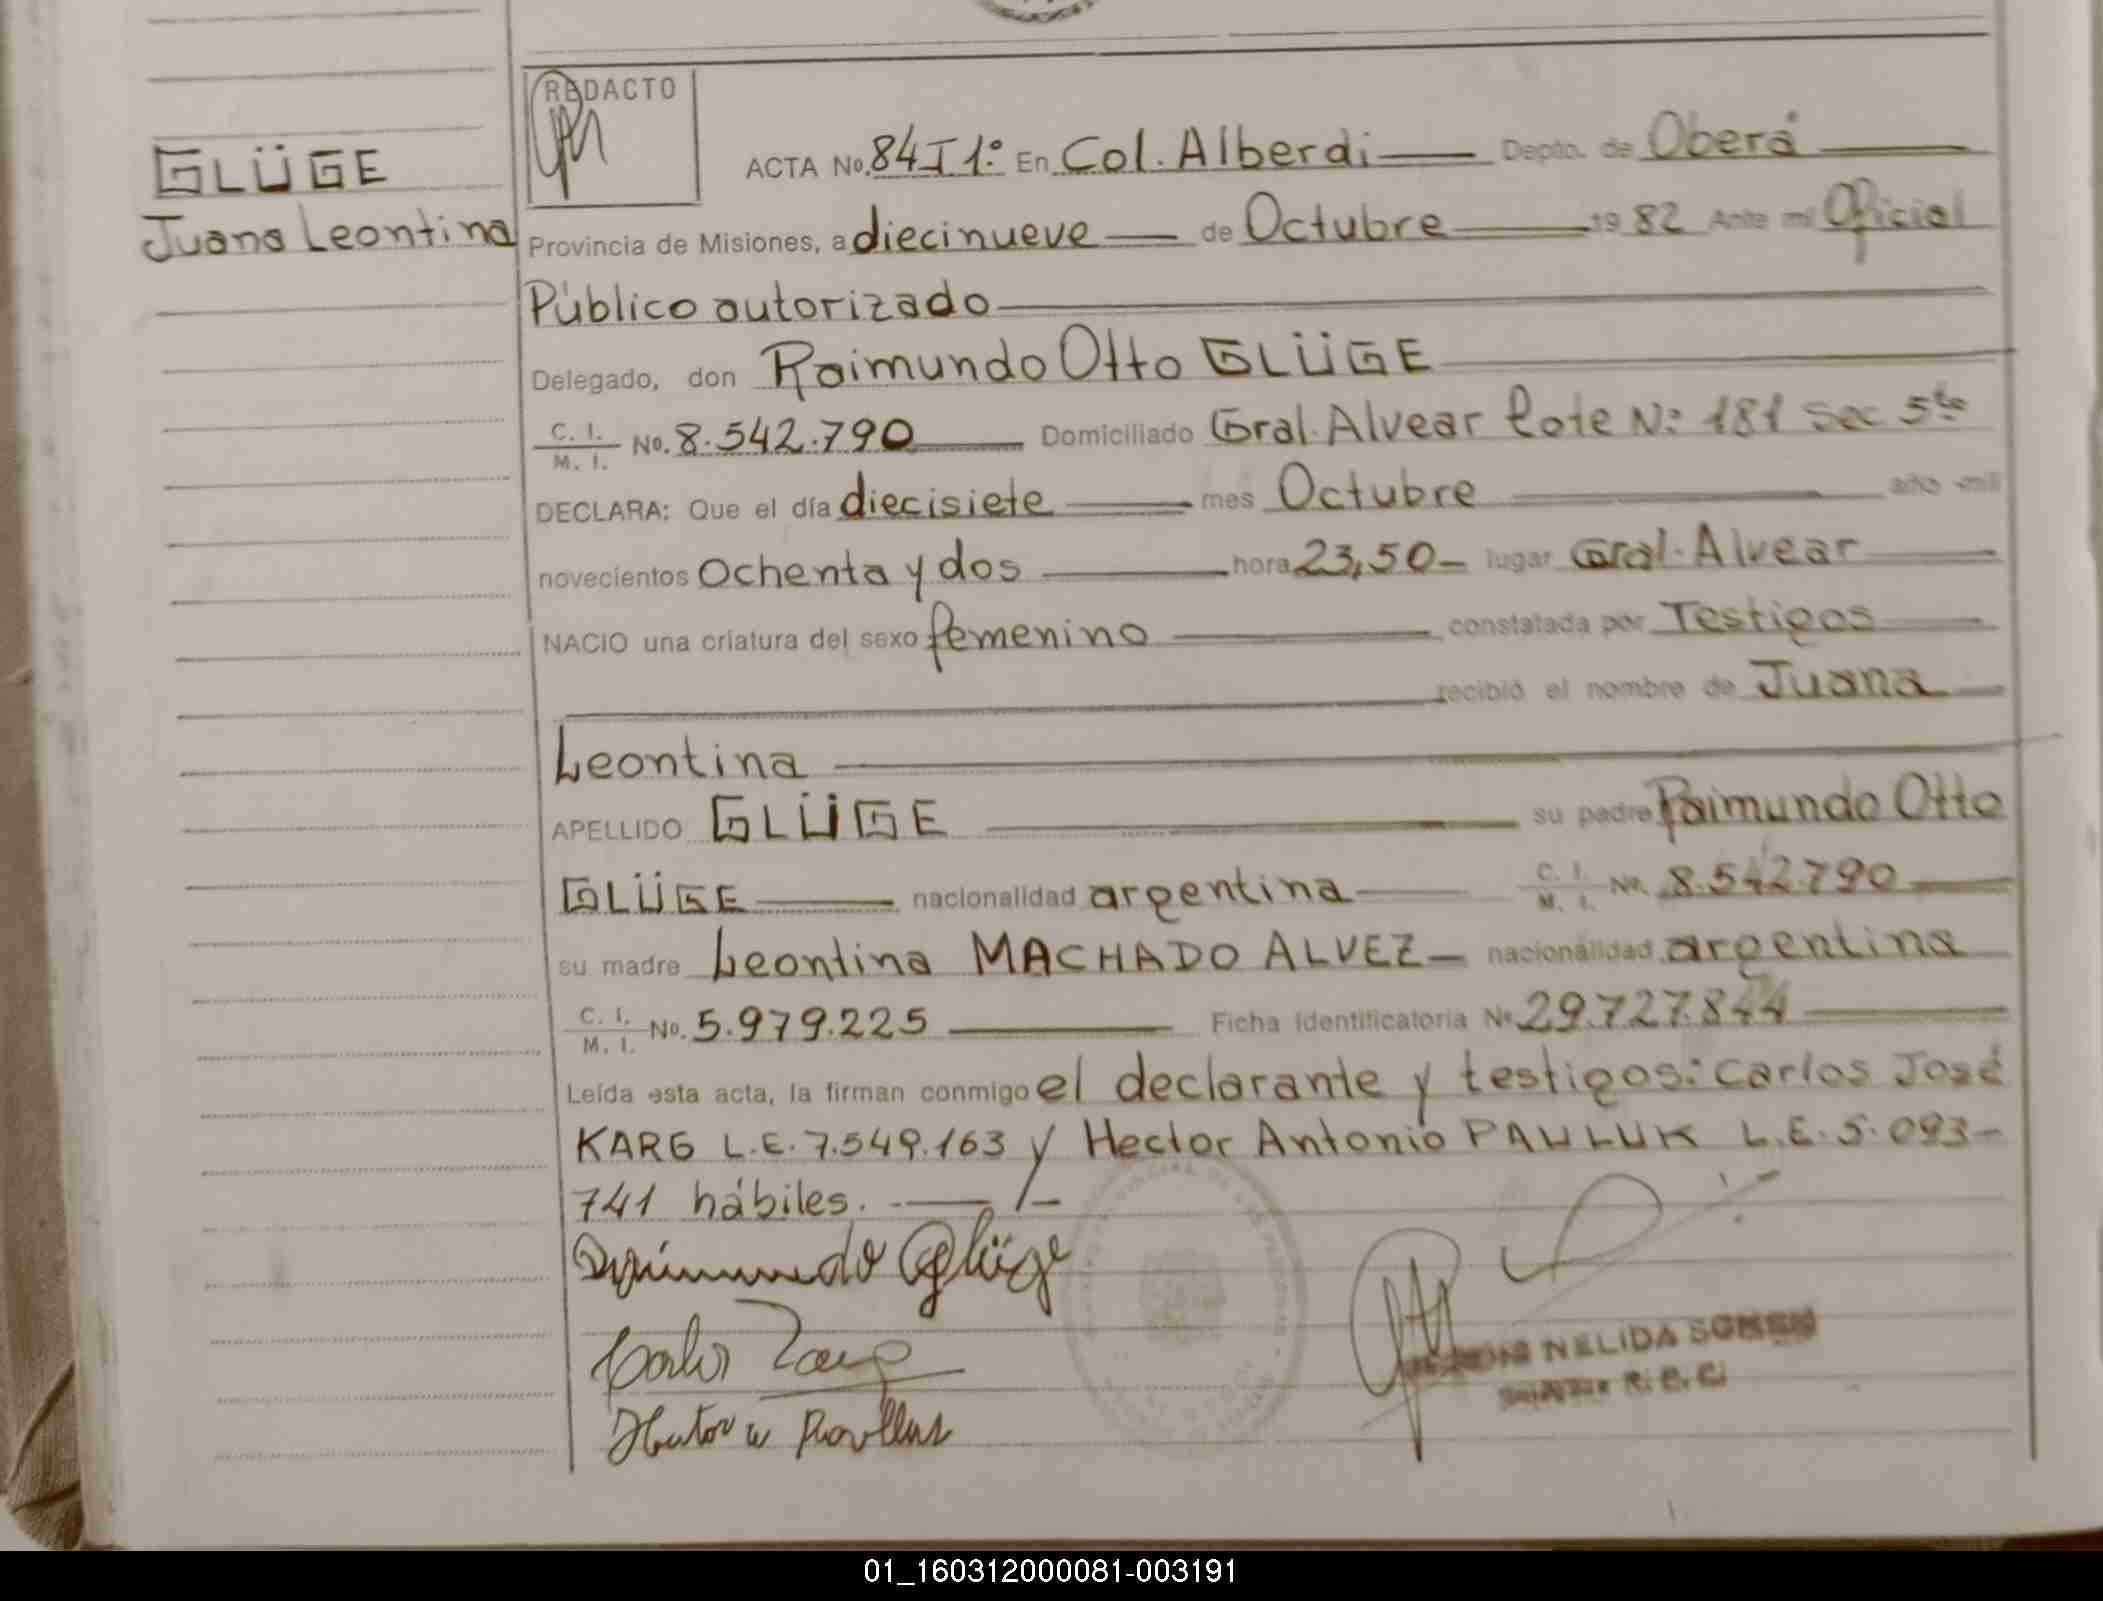 REDACTO
GLÜGE
Juana Leontina
ACTA No. 84 I 1:° En Col. Alberdi Depto. de Oberá
Provincia de Misiones, a diecinueve de Octubre 1982 Ante mí Oficial
Público autorizado
Delegado, don Raimundo Otto GLÜGE
C. I. / M. I. No. 8.542.790 Domiciliado Gral. Alvear Lote N: 181 Sec 5ta
DECLARA: Que el día diecisiete mes Octubre año mil
novecientos Ochenta y dos hora 23,50- lugar Gral. Alvear
NACIO una criatura del sexo femenino constatada por Testigos
recibió el nombre de Juana
Leontina
APELLIDO GLÜGE su padre Raimundo Otto
GLÜGE nacionalidad argentina C. I. / M. I. No. 8.542.790
su madre Leontina MACHADO ALVEZ nacionalidad argentina
C. I. / M. I. No. 5.979.225 Ficha Identificatoria No 29.727.844
Leída esta acta, la firman conmigo el declarante y testigos: Carlos José
KARG L.E. 7.549.163 y Hector Antonio PAWLUK L.E. 5.093-
741 hábiles. /-
Raimundo Glüge
NELIDA
01_160312000081-003191